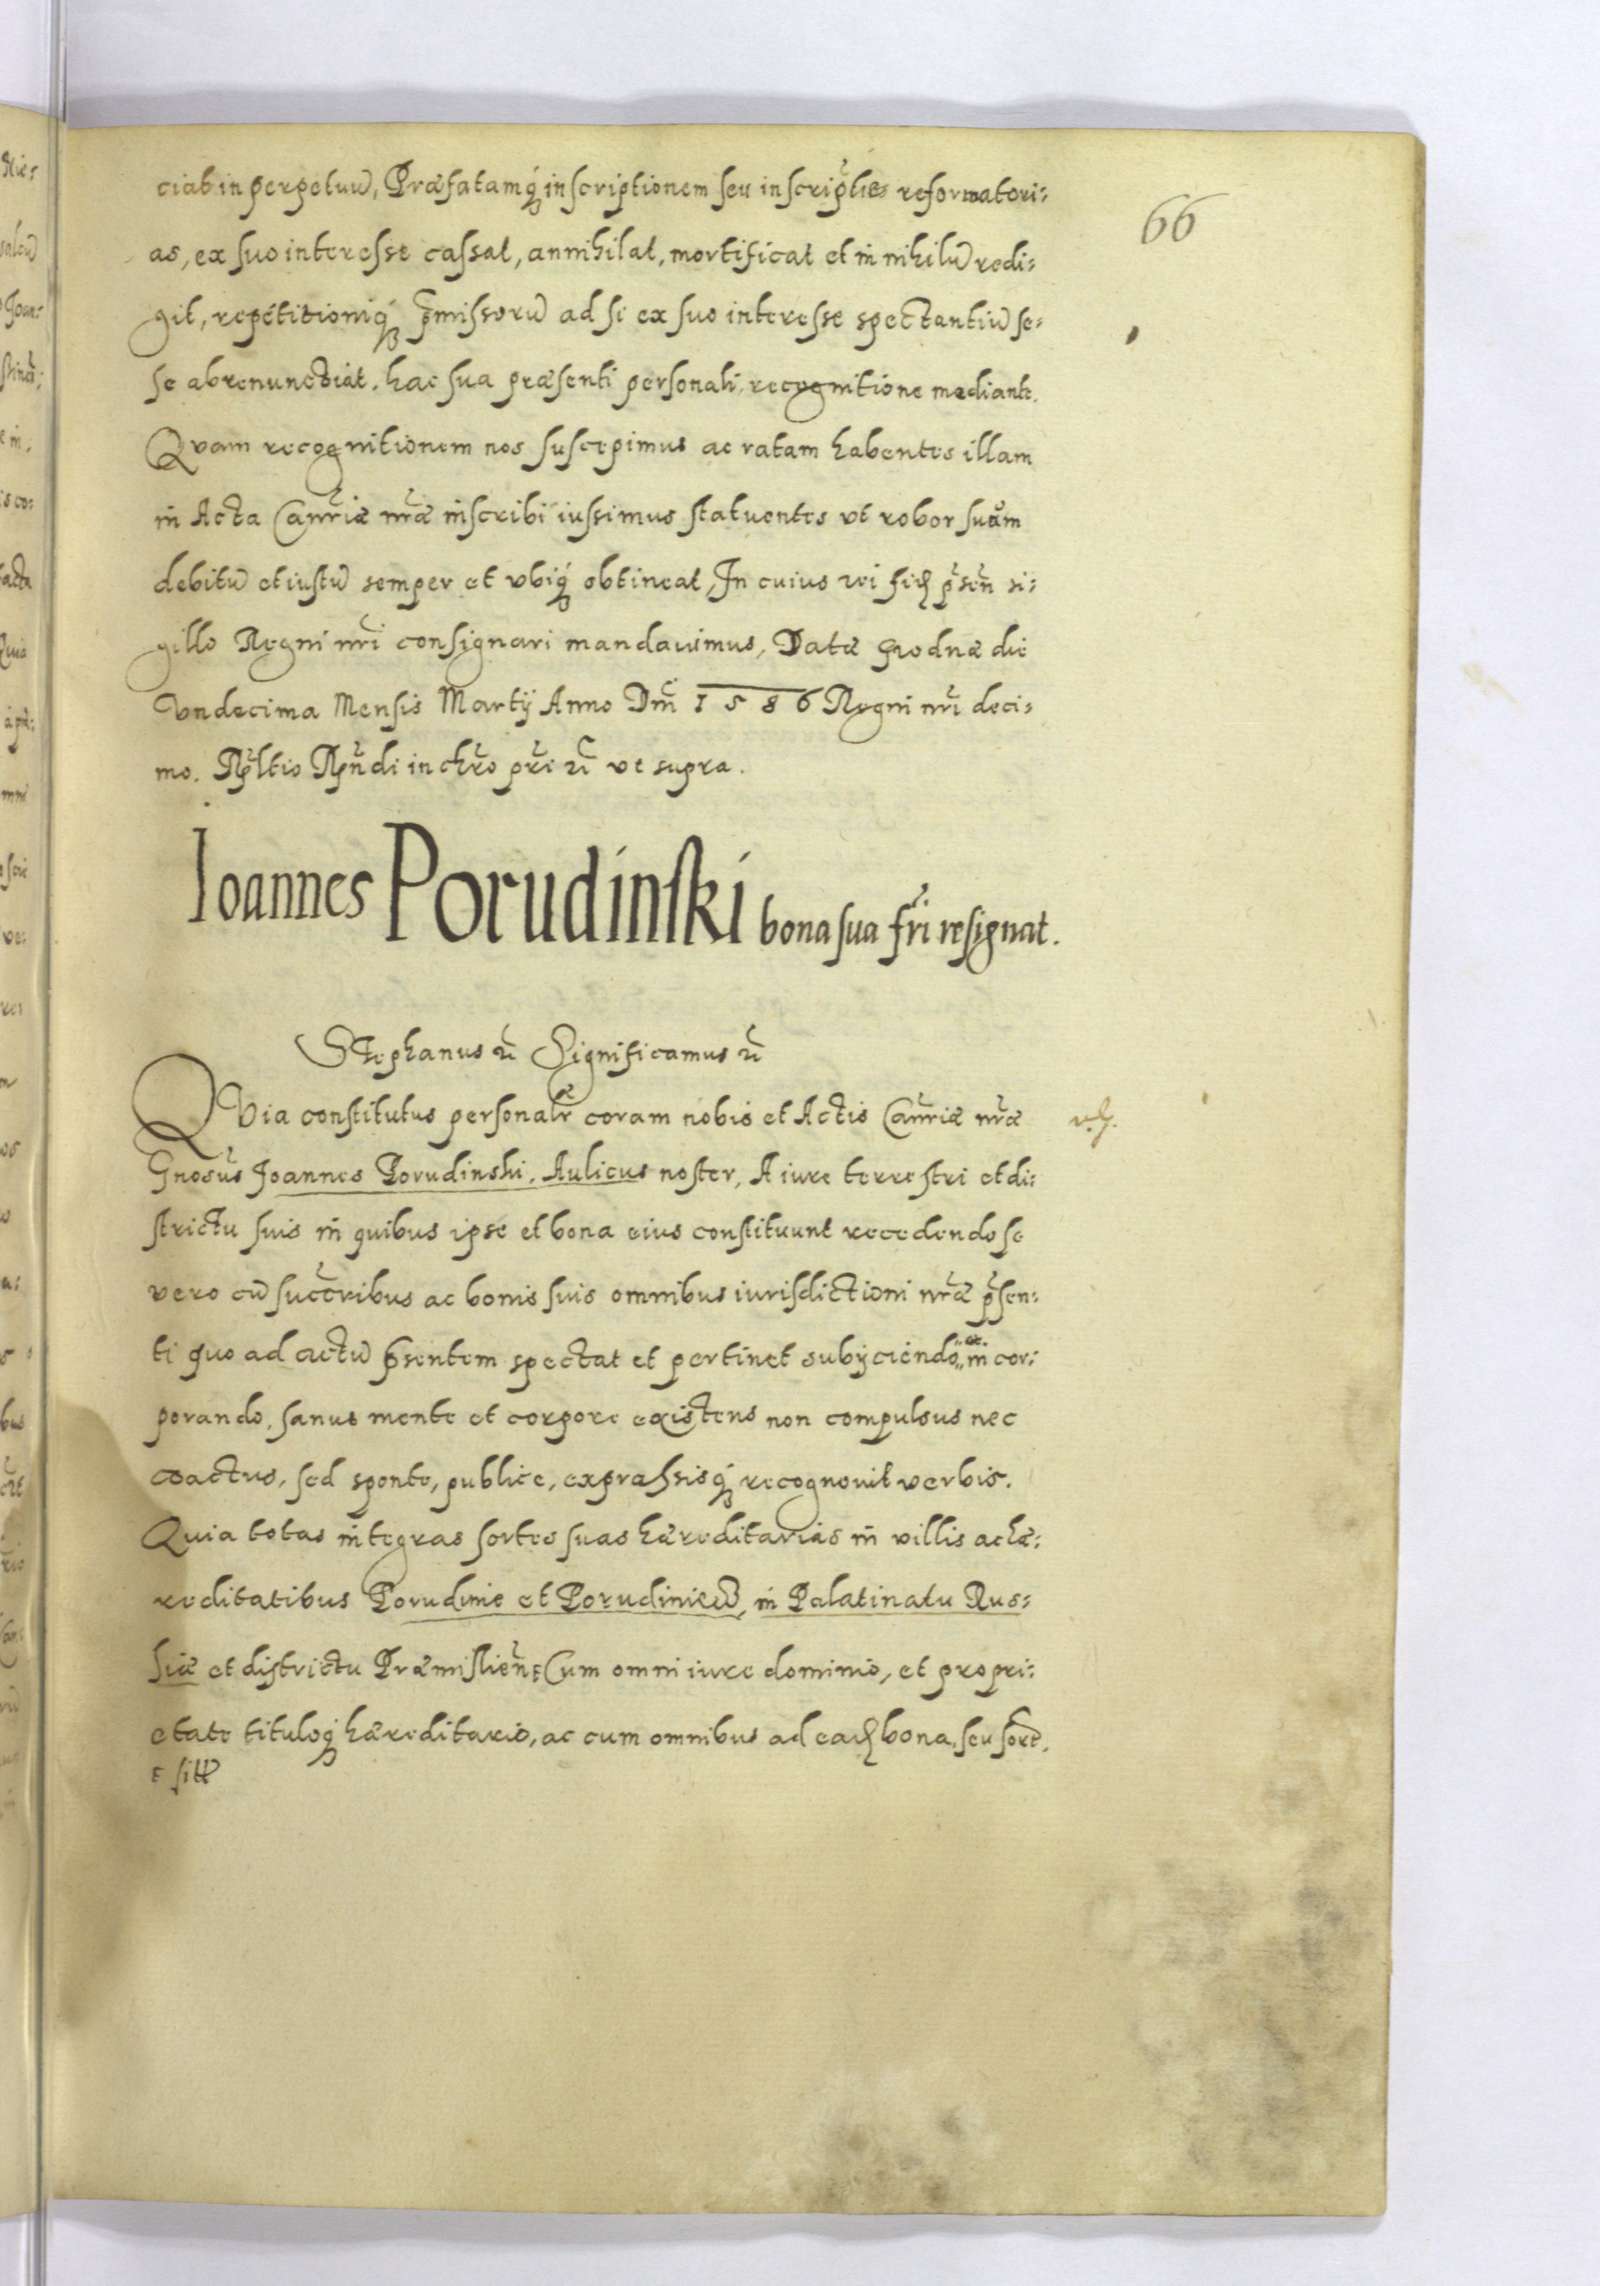 66
ciat in perpetuũ, Præfatamq́ inscriptionem seu inscrip̃ties reformatori:
as, ex suo interesse cassat, annihilat, mortificat et in nihilũ redi:
git, repetitioniq́ p̃missorũ ad si ex suo interesse spectantiũ se:
se abrenunctiat, hac sua præsenti personali recognitione mediante.
Quam recognitionem nos suscepimus ac ratam habentes illam
in Acta Canr̃iæ nr̃æ inscribi iussimus statuentes vt robor suũm
debitũ et iustũ semper et vbiq́ obtineat, In cuius rei fid p̃sen̄ si:
gillo Regni nr̃i consignari mandauimus, Datæ Grodnæ die
Vndecima Mensis Martÿ Anno Dm̃ 1586 Regni nr̃i deci:
mo. Rp̃ltio Rp̃n̄di in chr̃o pr̃i rc̃ vt supra.
Ioannes Porudinski bona sua fr̃i resignat.
Stephanus rc̃ Significamus rc̃
QVia constitutus personalr̃ coram nobis et Actis Canr̃iæ nr̃æ
Gnosũs Joannes Porudinski, Aulicus noster, A iure terrestri et di:
strictu suis in quibus ipse et bona eius constituunt recedendo se
vero cũ succr̃ibus ac bonis suis omnibus iurisdictioni nr̃æ p̃sen:
ti quo ad actũ p̃sentem spectat et pertinet subÿciendo, et in cor:
porando, sanus mente et corpore existens non compulsus nec
coactus, sed sponte, publice, expræssisq́ recognouit verbis.
Quia totas integras sortes suas hæreditarias in villis ac hæ:
reditatibus Porudnie et Porudinieũ, in Palatinatu Rus:
siæ et districtu Præmislien̄: Cum omni iure dominio, et propri:
etate tituloq́ hæreditario, ac cum omnibus ad ead bona, seu sort̃.
: sitt̃